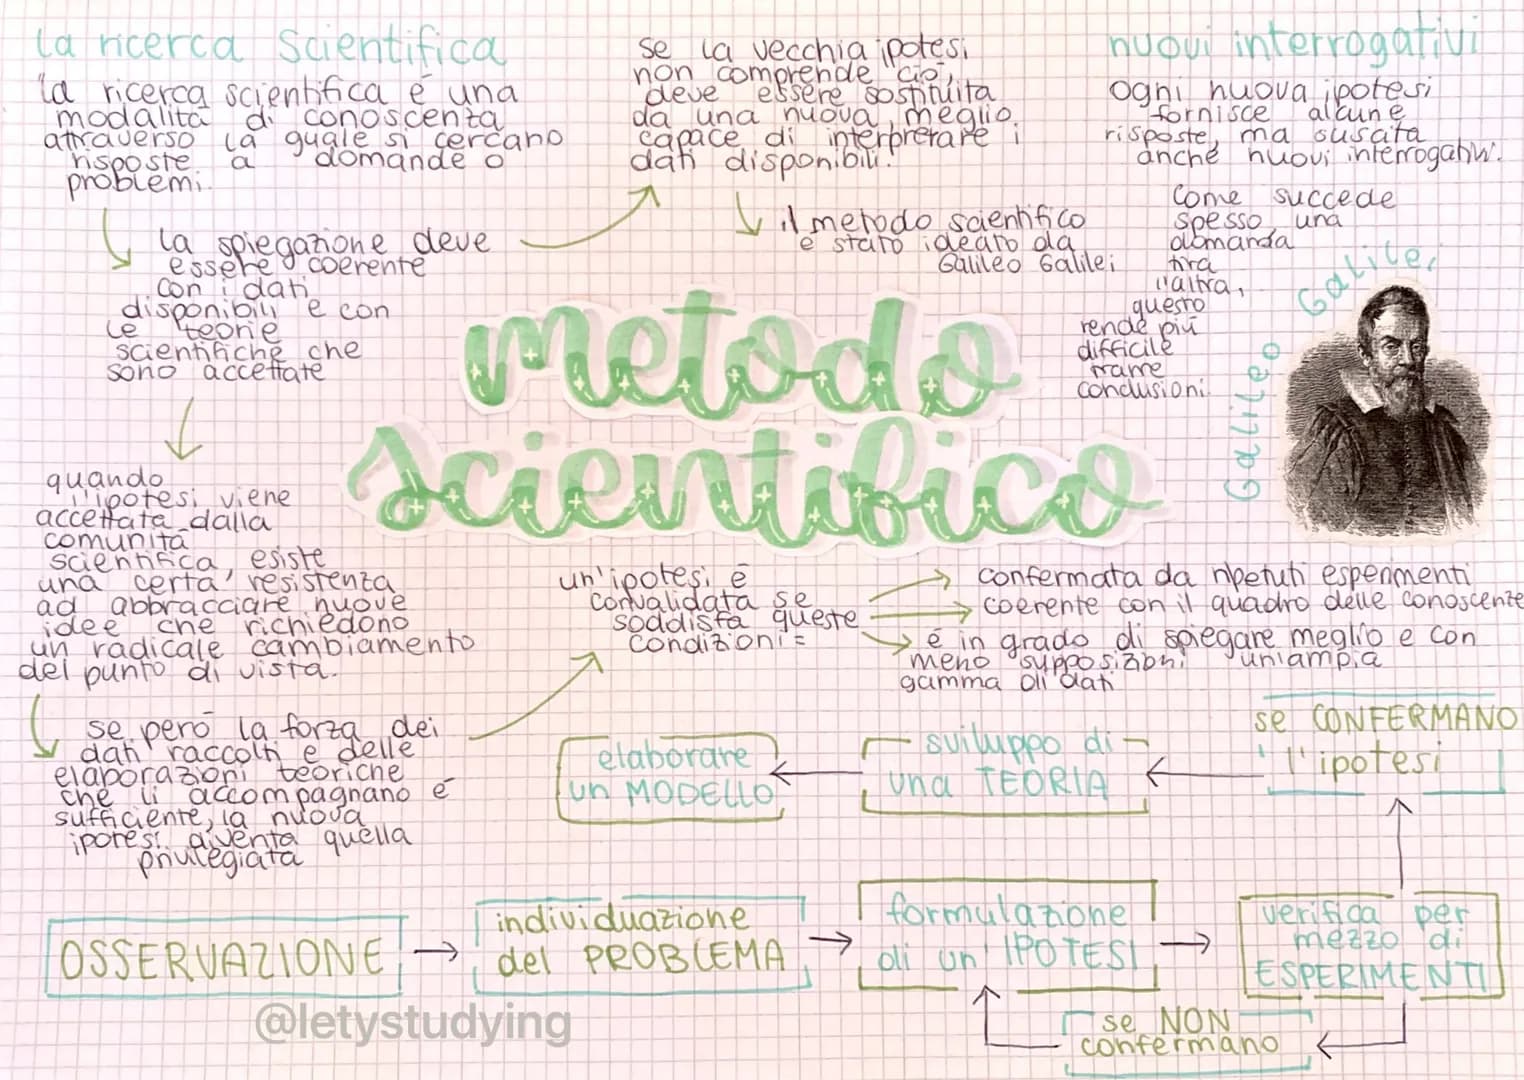 la ricerca scientifica
la ricerca scientifica è una
modalità di conoscenza
attraverso la quale si cercano
risposte a domande o
problemi.
la spiegazione deve
essere coerente
con i dati
disponibili e con
le teorie
scientifiche che
sono accettate
quando
l'ipotesi viene
accettata dalla
comunità
scientifica, esiste
una certa resistenza
ad abbracciare nuove
idee che richiedono
un radicale cambiamento
del punto di vista.
se però la forza dei
dati raccolti e delle
elaborazioni teoriche
che li accompagnano è
sufficiente, la nuova
ipotesi diventa quella
privilegiata
se la vecchia ipotesi
non comprende ciò,
deve essere sostituita
da una nuova, meglio
capace di interpretare i
dati disponibili.
il metodo scientifico
è stato ideato da
Galileo Galilei
nuovi interrogativi
ogni nuova ipotesi
fornisce alcune
risposte, ma suscita
anche nuovi interrogativi.
Come succede
spesso, una
domanda
tira
l'altra,
questo
rende più
difficile
trarre
conclusioni.
Galileo Galilei
metodo
scientifico
un'ipotesi è
convalidata se
soddisfa queste
condizioni=
confermata da ripetuti esperimenti
coerente con il quadro delle conoscenze
è in grado di spiegare meglio e con
meno supposizioni un'ampia
gamma di dati
elaborare
un MODELLO
sviluppo di
una TEORIA
se CONFERMANO
l'ipotesi
OSSERVAZIONE
individuazione
del PROBLEMA
formulazione
di un' IPOTESI
verifica per
mezzo di
ESPERIMENTI
se NON
confermano
@letystudying